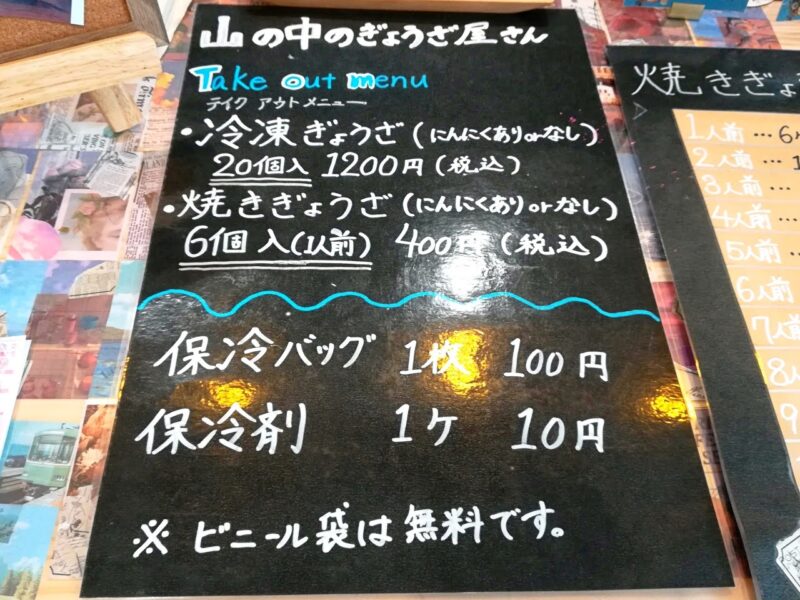 山の中のぎょうざ屋さん
Take out menu
テイクアウトメニュー
・冷凍ぎょうざ(にんにくありorなし)
20個入 1200円(税込)
・焼きぎょうざ(にんにくありorなし)
6個入(1人前) 400円(税込)
保冷バッグ 1枚 100円
保冷剤 1ケ 10円
※ ビニール袋は無料です。
焼きぎょ
1人前…6
2人前…1
3人前…
4人前…
5人前…
6人前
7人前
8人
9